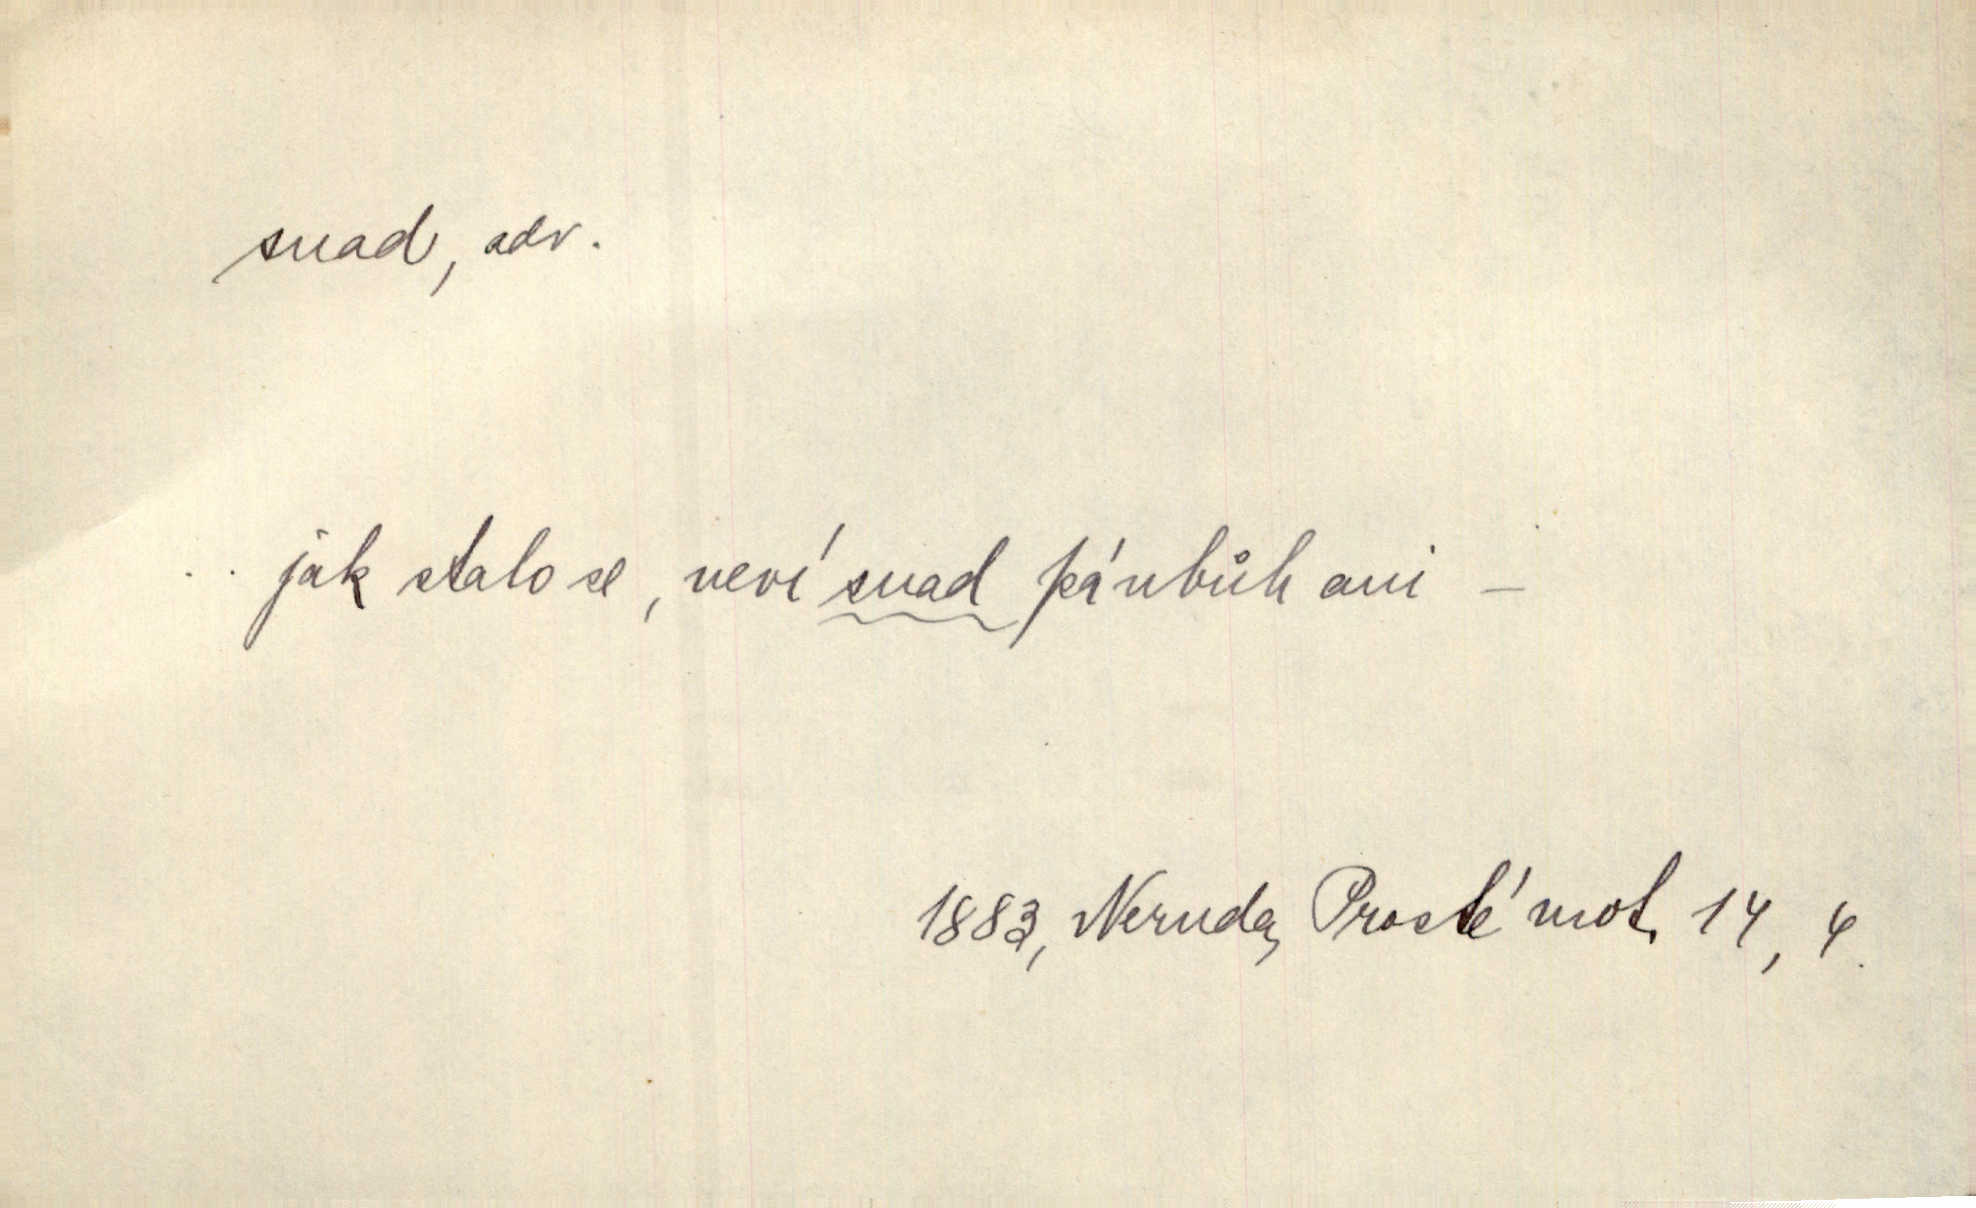 snad, adv.
.. jak stalo se, neví snad pánbůh ani –
1883, Neruda, Prosté mot. 14, 4.